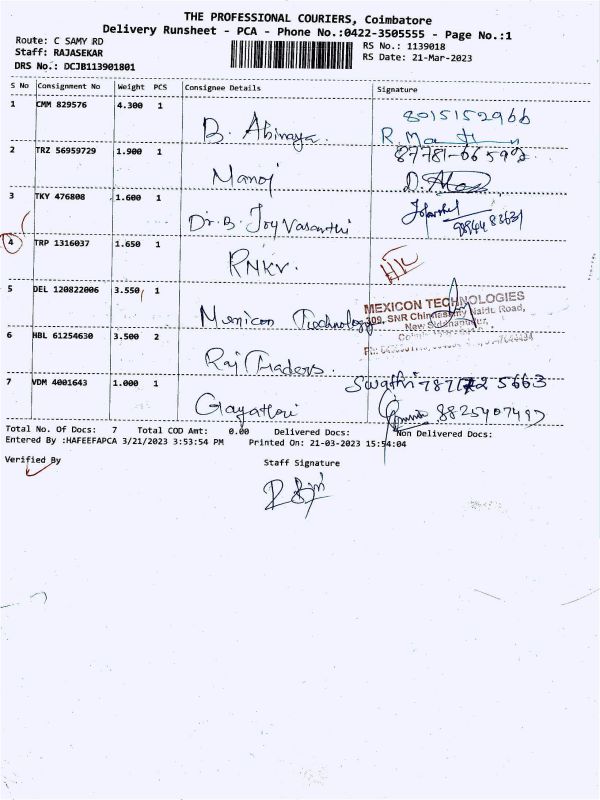 THE PROFESSIONAL COURIERS, Coimbatore
Delivery Runsheet - PCA - Phone No.:0422-3505555 - Page No.:1
Route: C SAMY RD
RS No.: 1139018
Staff: RAJASEKAR
RS Date: 21-Mar-2023
DRS No.: DCJB113901801
S No Consignment No Weight PCS Consignee Details Signature
1 CMM 829576 4.300 1 B. Abinaya 8015152966
2 TRZ 56959729 1.900 1 Manoj
3 TKY 476808 1.600 1 Dr. B. Joy Vasanthi
4 TRP 1316037 1.650 1 RNKV.
5 DEL 120822006 3.550 1 Mexicon Technology
MEXICON TECHNOLOGIES
309, SNR Chinnasamy Naidu Road,
New Siddhapudur,
6 HBL 61254630 3.500 2 Raj Traders.
7 VDM 4001643 1.000 1 Gayathri Swathi
Total No. Of Docs: 7 Total COD Amt: 0.00 Delivered Docs: Non Delivered Docs:
Entered By :HAFEEFAPCA 3/21/2023 3:53:54 PM Printed On: 21-03-2023 15:54:04
Verified By Staff Signature